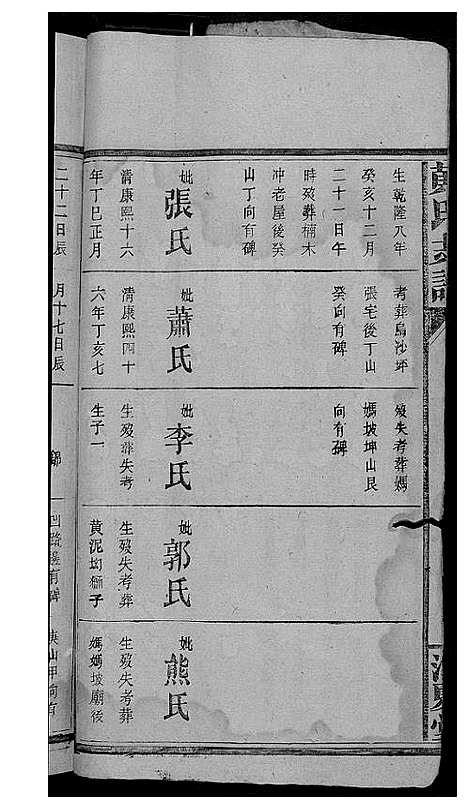 氏
生乾隆八年
癸亥十二月
二十一日午
時歿葬楠木
冲老屋後癸
山丁向有碑
妣張氏
清康熙十六
年丁巳正月
二十二日辰
考葬烏沙坪
張宅後丁山
癸向有碑
妣蕭氏
清康熙四十
六年丁亥七
月十七日辰
歿失考葬媽
媽坡坤山艮
向有碑
妣李氏
生歿葬失考
生子一
妣郭氏
生歿失考葬
黃泥坳獅子
妣熊氏
生歿失考葬
媽媽坡廟後